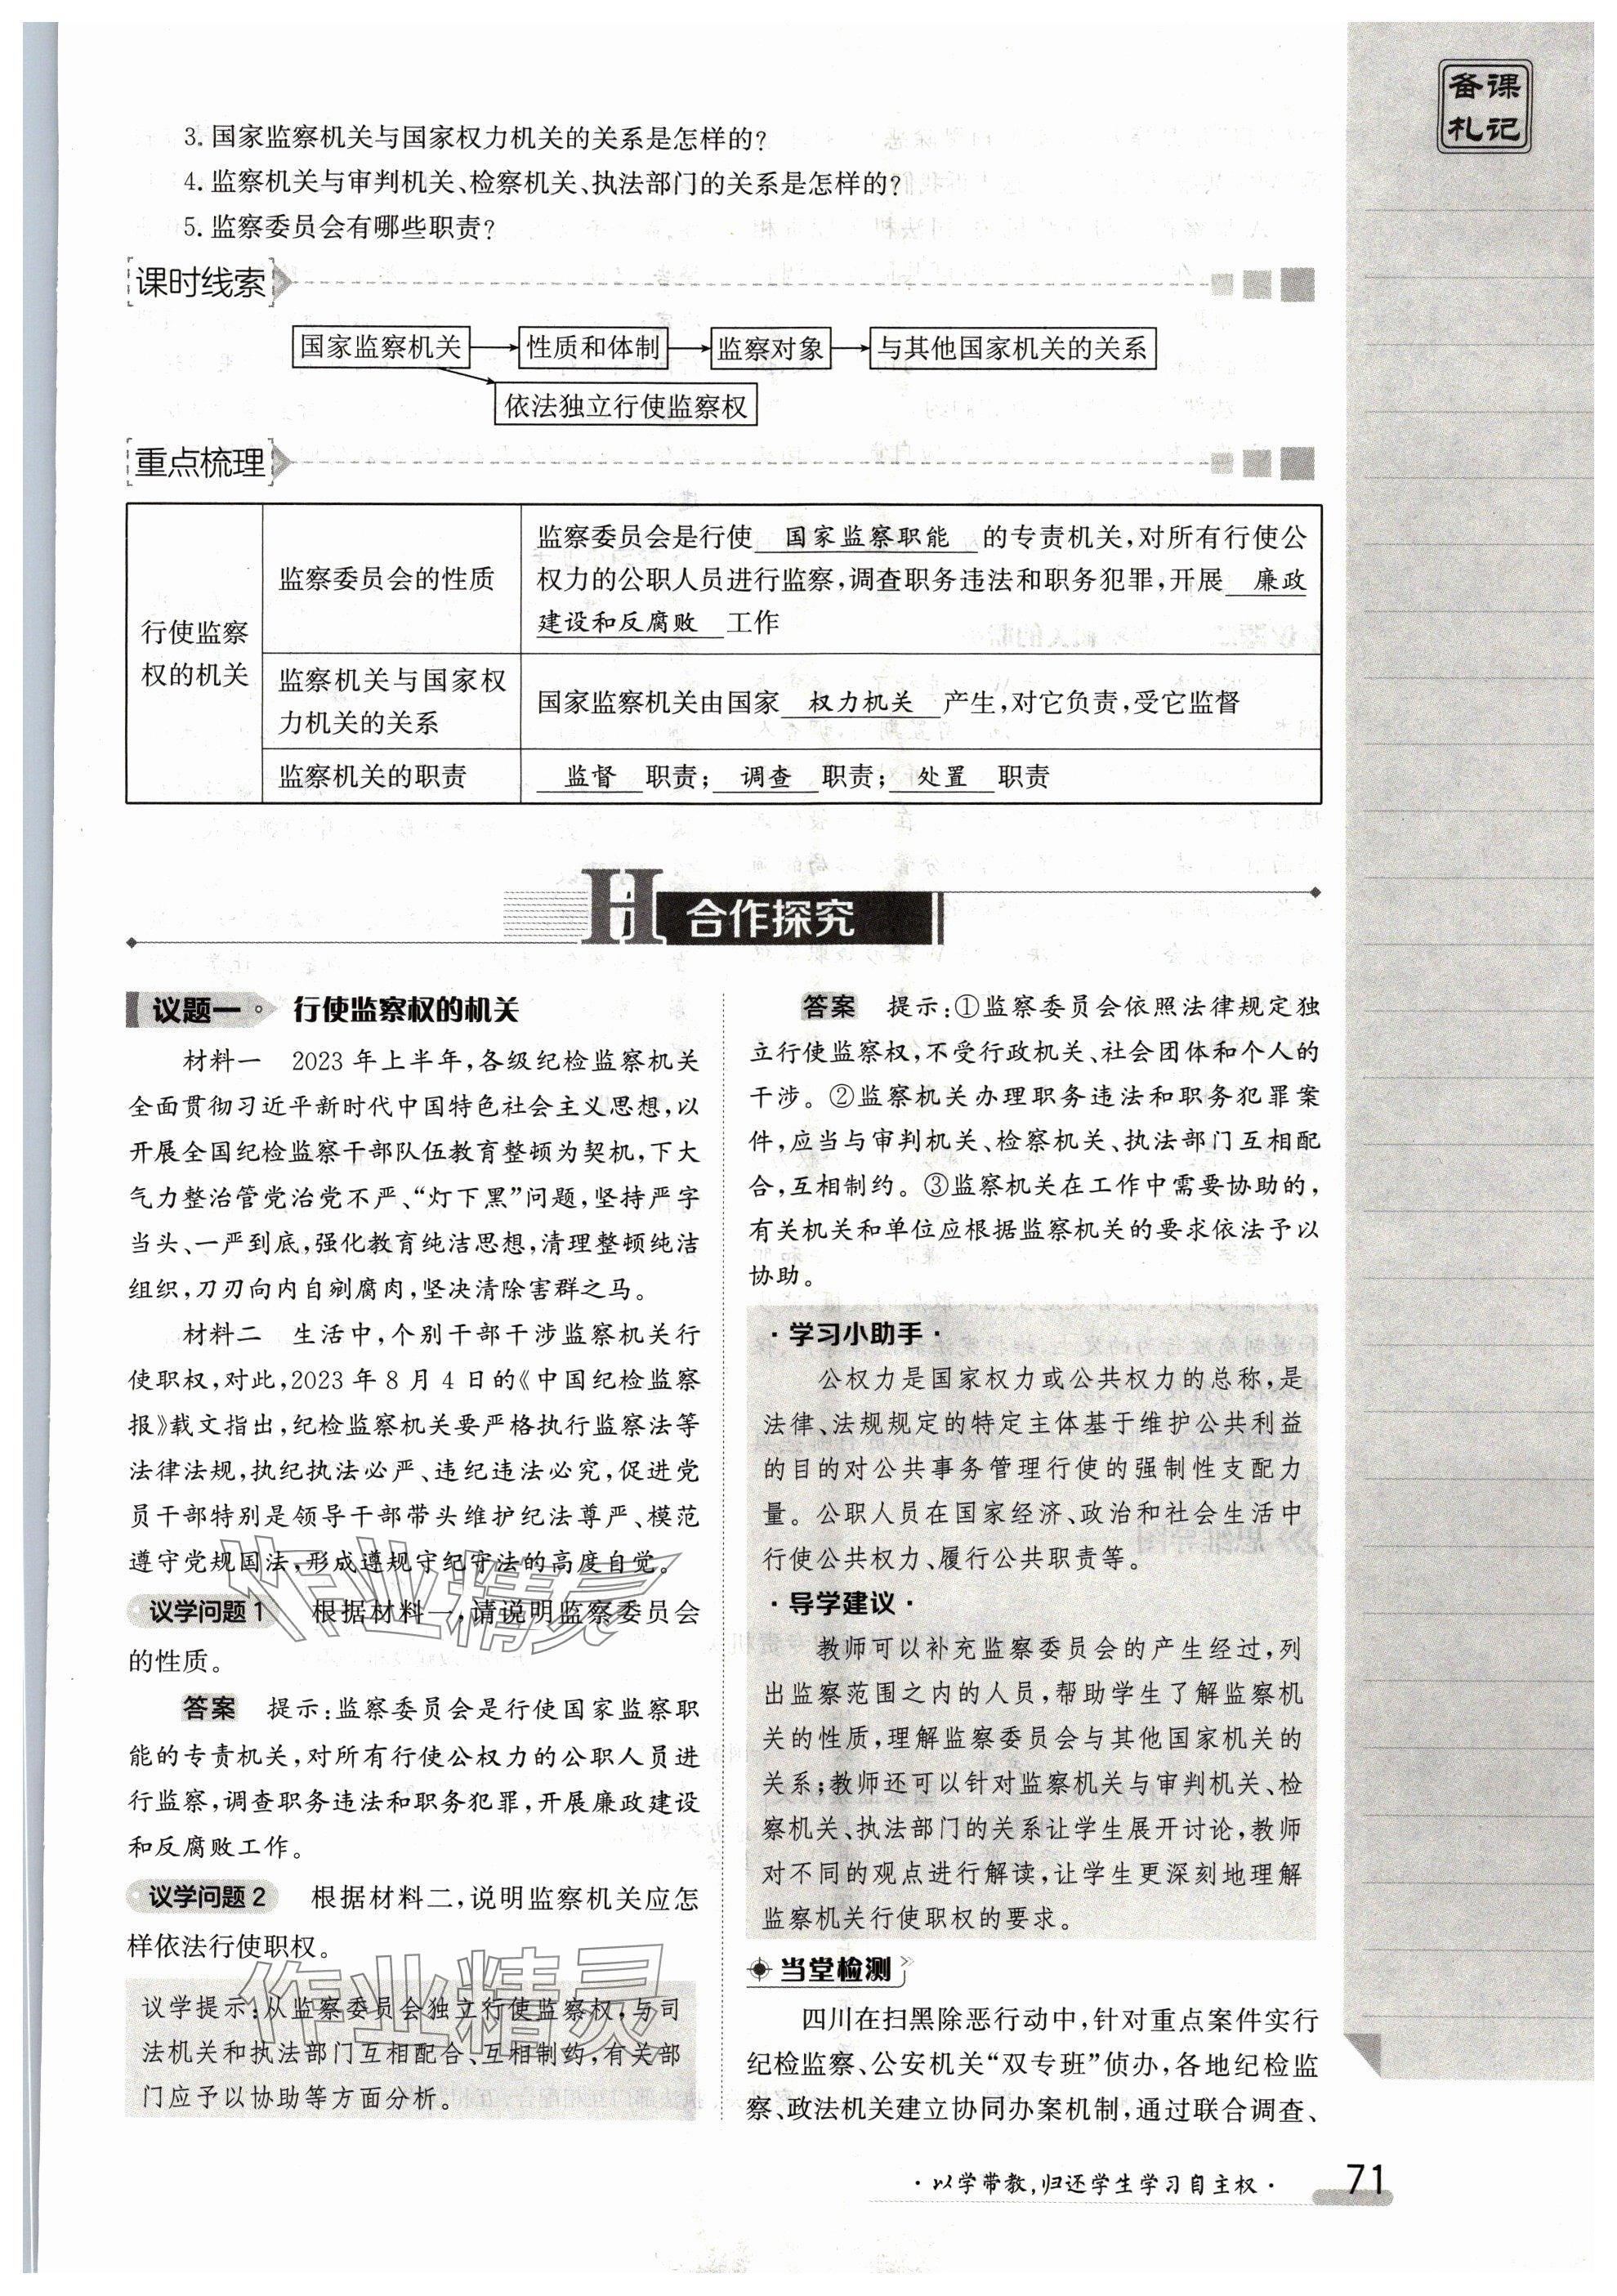 备课
札记
3. 国家监察机关与国家权力机关的关系是怎样的?
4. 监察机关与审判机关、检察机关、执法部门的关系是怎样的?
5. 监察委员会有哪些职责?
课时线索
国家监察机关 性质和体制 监察对象 与其他国家机关的关系
依法独立行使监察权
重点梳理
行使监察
权的机关
监察委员会的性质
监察委员会是行使 国家监察职能 的专责机关,对所有行使公
权力的公职人员进行监察,调查职务违法和职务犯罪,开展 廉政
建设和反腐败 工作
监察机关与国家权
力机关的关系
国家监察机关由国家 权力机关 产生,对它负责,受它监督
监察机关的职责
监督 职责; 调查 职责; 处置 职责
H 合作探究
议题一 行使监察权的机关
材料一 2023年上半年,各级纪检监察机关
全面贯彻习近平新时代中国特色社会主义思想,以
开展全国纪检监察干部队伍教育整顿为契机,下大
气力整治管党治党不严、“灯下黑”问题,坚持严字
当头、一严到底,强化教育纯洁思想,清理整顿纯洁
组织,刀刃向内自剜腐肉,坚决清除害群之马。
材料二 生活中,个别干部干涉监察机关行
使职权,对此,2023年8月4日的《中国纪检监察
报》载文指出,纪检监察机关要严格执行监察法等
法律法规,执纪执法必严、违纪违法必究,促进党
员干部特别是领导干部带头维护纪法尊严、模范
遵守党规国法,形成遵规守纪守法的高度自觉。
议学问题1 根据材料一,请说明监察委员会
的性质。
答案 提示:监察委员会是行使国家监察职
能的专责机关,对所有行使公权力的公职人员进
行监察,调查职务违法和职务犯罪,开展廉政建设
和反腐败工作。
议学问题2 根据材料二,说明监察机关应怎
样依法行使职权。
议学提示:从监察委员会独立行使监察权,与司
法机关和执法部门互相配合、互相制约,有关部
门应予以协助等方面分析。
答案 提示:①监察委员会依照法律规定独
立行使监察权,不受行政机关、社会团体和个人的
干涉。②监察机关办理职务违法和职务犯罪案
件,应当与审判机关、检察机关、执法部门互相配
合,互相制约。③监察机关在工作中需要协助的,
有关机关和单位应根据监察机关的要求依法予以
协助。
·学习小助手·
公权力是国家权力或公共权力的总称,是
法律、法规规定的特定主体基于维护公共利益
的目的对公共事务管理行使的强制性支配力
量。公职人员在国家经济、政治和社会生活中
行使公共权力、履行公共职责等。
·导学建议·
教师可以补充监察委员会的产生经过,列
出监察范围之内的人员,帮助学生了解监察机
关的性质,理解监察委员会与其他国家机关的
关系;教师还可以针对监察机关与审判机关、检
察机关、执法部门的关系让学生展开讨论,教师
对不同的观点进行解读,让学生更深刻地理解
监察机关行使职权的要求。
当堂检测
四川在扫黑除恶行动中,针对重点案件实行
纪检监察、公安机关“双专班”侦办,各地纪检监
察、政法机关建立协同办案机制,通过联合调查、
作业精灵
作业精灵
·以学带教,归还学生学习自主权·
71